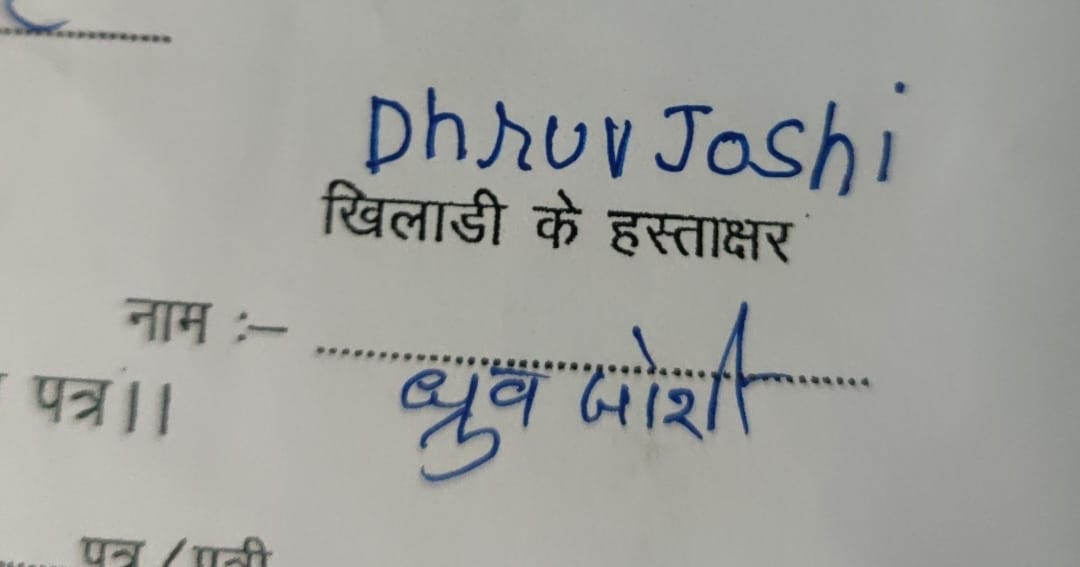 Dhruv Joshi
खिलाडी के हस्ताक्षर
नाम :–
ध्रुव जोशी
पत्र।।
पुत्र / पुत्री